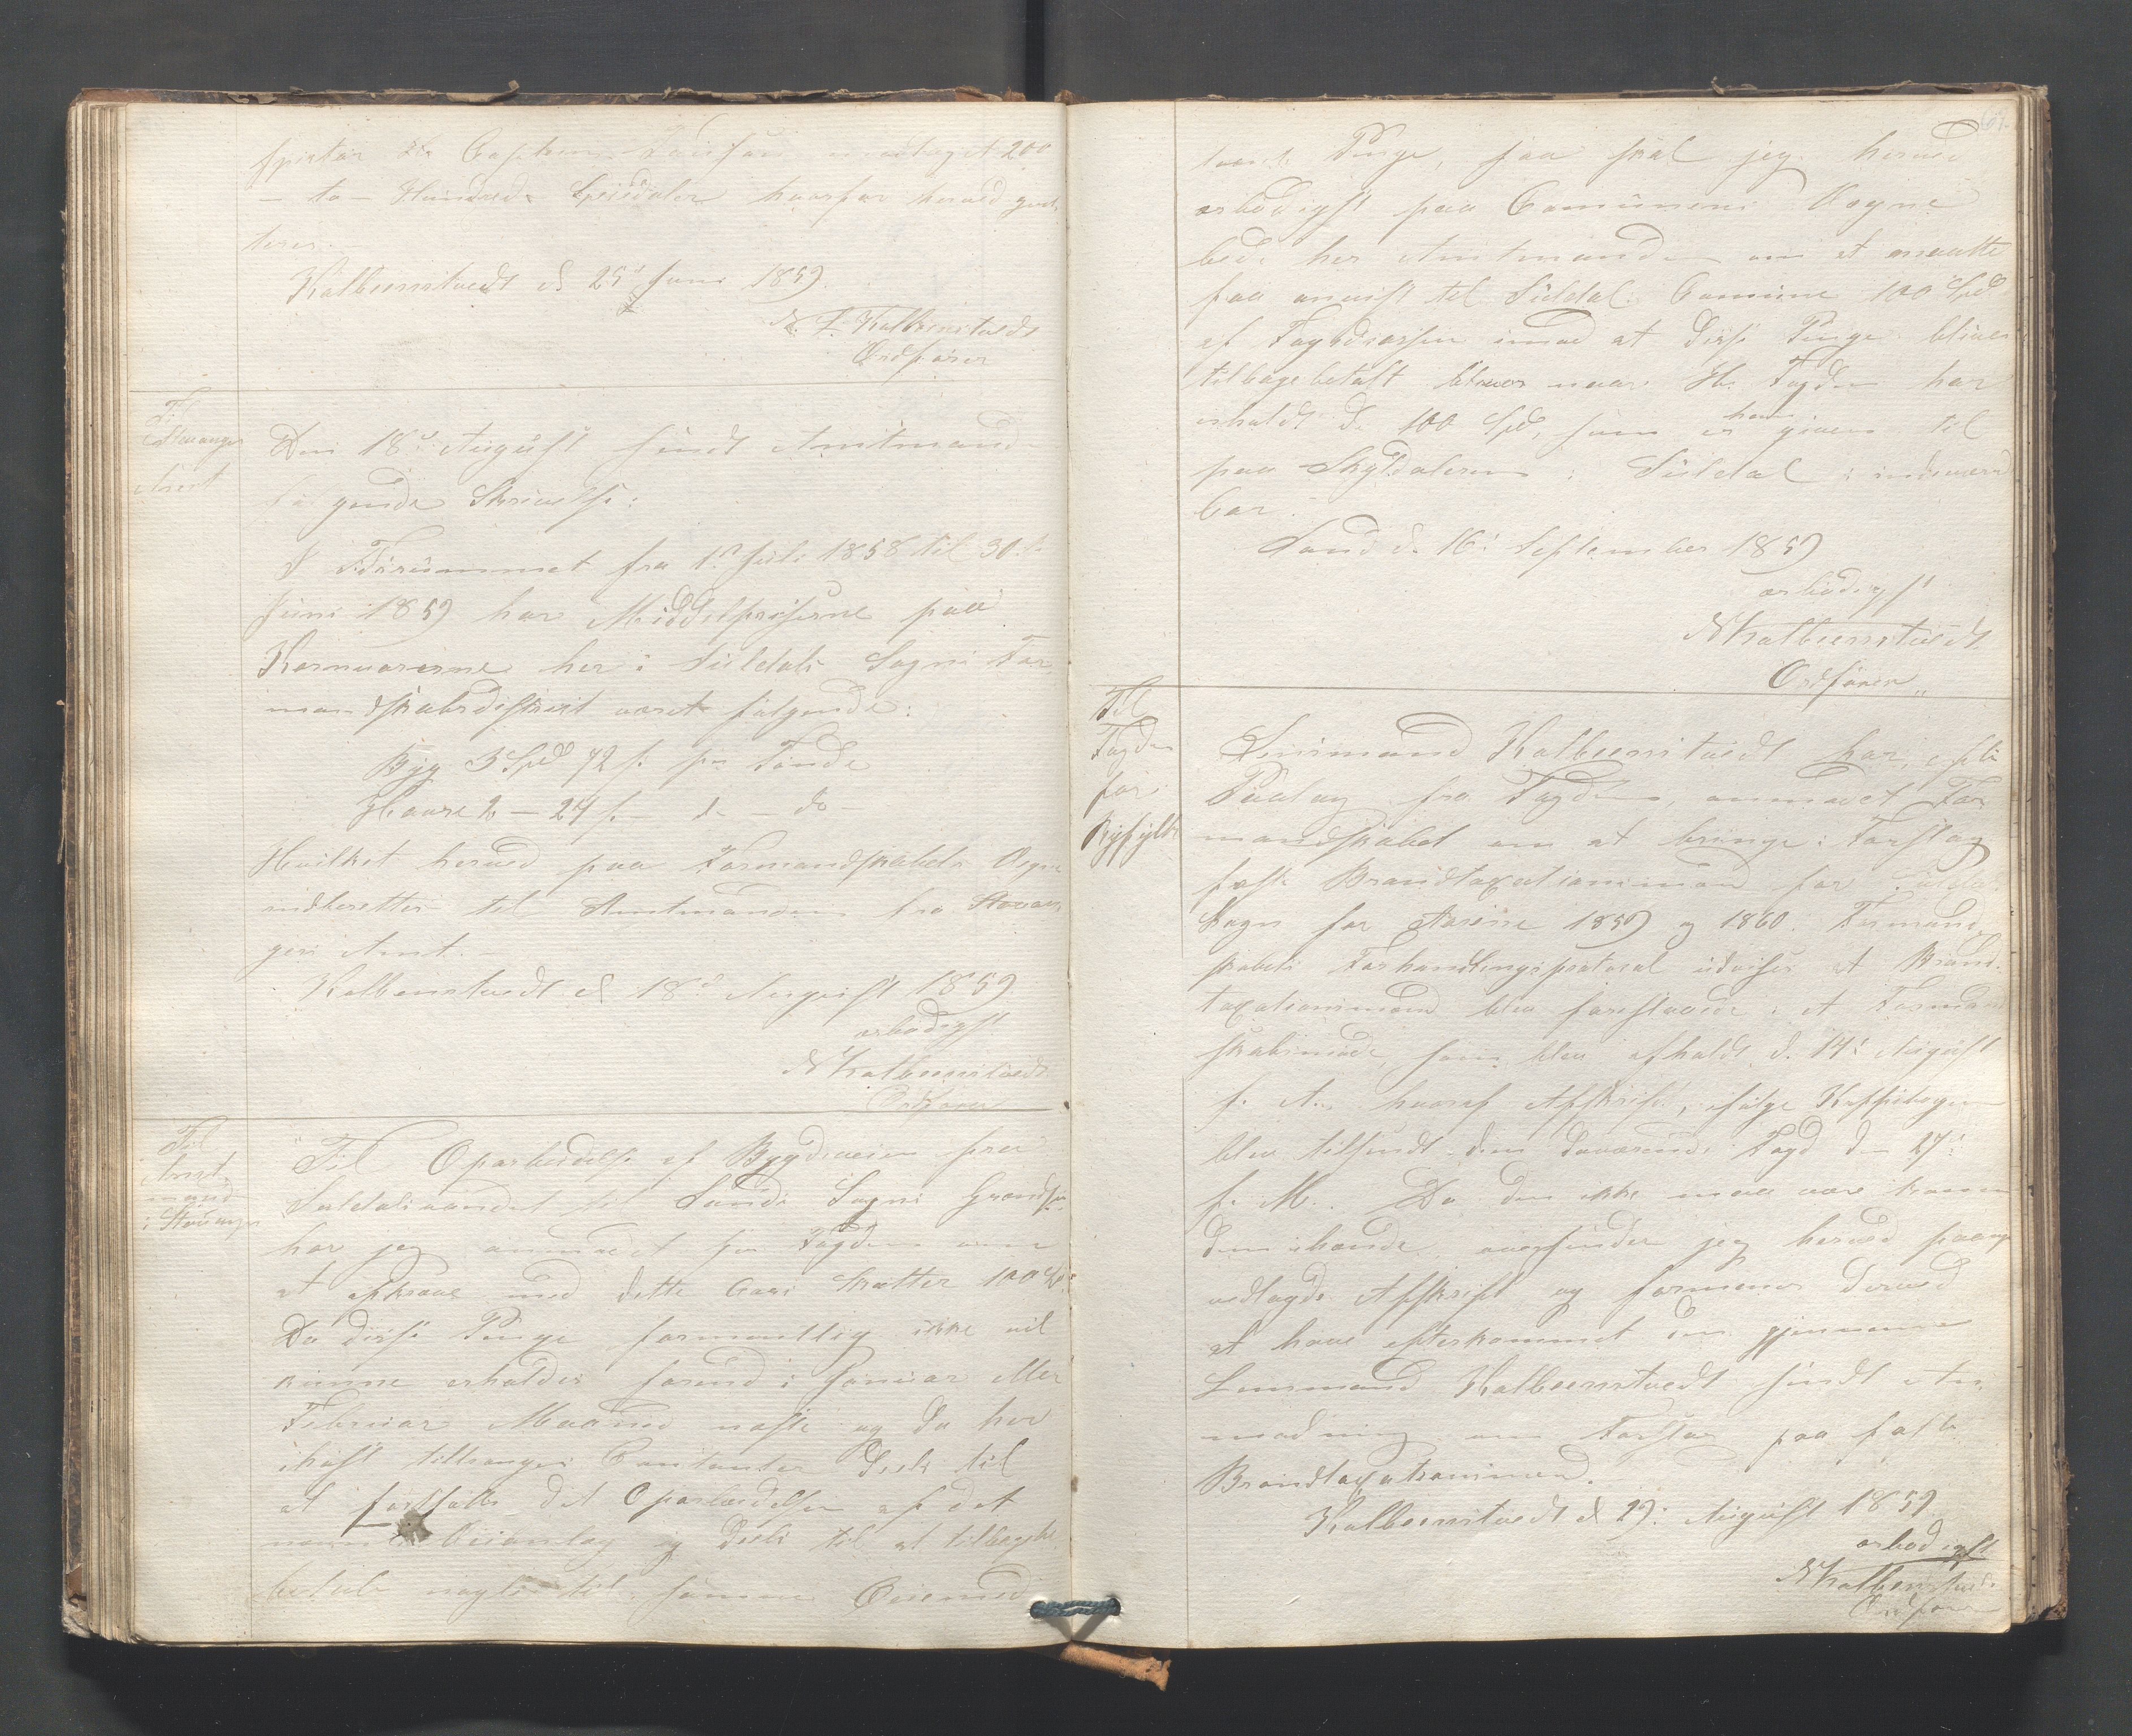 Hr Capten modtaget 200
- to - Hundrede Speisdaler hvorfor herved qvit-
teres. -
Kolbeenstvedt d 25d Juni 1859.
N. T. Kolbeenstvedt
Ordfører
Til
Stavanger
Amt
Den 18d August sendt Amtmand
følgende Skrivelse:
I Tidsrummet fra 1d Juli 1858 til 30te
Juni 1859 har Middelpriserne paa
Kornvarerne her i Suldals Sogns For-
mandskabsdistrict været følgende:
Byg 3 Spd 72 s. pr Tønde
Havre 2 - 24 s. - d - do -
Hvilket herved paa Formandskabets Vegne
indberettes til Amtmanden fra Stavan-
gers Amt. -
Kolbeenstvedt d 18d August 1859
ærbødigst
NKolbeenstvedt
Ordfører
Til
Amt-
mand
i Stavanger
Til Oparbeidelse af Bygdeveien fra
Suldalsvandet til Sands Sogns Grændse
har jeg anmodet hr Fogden om
at opkræve med dette Aars Skatter 100 Spd:
Da disse Penge formentlig ikke vil
kunne erholdes førend i Januar eller
Februar Maaned næste og da her
ihøst tiltrænges Contanter deels til
at fortsætte det Oparbeidelse af det
nævnte Veianlæg og deels til at tilbage-
betale nogle til samme Øiemed
laante Penge, saa skal jeg herved
ærbødigst paa Comünens Vegne
bede her Amtmanden om at maatte
faa anvist til Suldals Comüne 100 Spd
af Fogdcassen imod at disse Penge bliver
tilbagebetalt naar Hr. Fogden har
erholdt de 100 Spd, som er ham givem til
paa Skyldaleren i Süldal i indeværende
Aar.
Sand d. 16: September 1859
ærbødigst
NKolbeenstvedt.
Ordfører,,
Til
Fogden
for
Ryfylke
Lensmand Kolbeenstvedt har, efter
Paalæg fra Fogden, anmodet For-
mandskabet om at bringe i Forslag
faste Brandtaxationsmænd for Suldals
Sogn for Aarene 1859 og 1860. Formand-
skabets Forhandlingsprotocol udviser at Brand-
taxationsmænd blev foreslaaede i et Formand-
skabsmøde, som blev afholdt d. 14: August
f. A., hvoraf Afskrift, ifølge Kopibogen
blev tilsendt den daværende Fogd d 27:
s. M.. Da den ikke maa være kommen
dem ihænde oversender jeg herved paany
vedlagde Afskrift og formener derved
at have efterkommet den gjennem
Lensmand Kolbeenstvedt sendt An-
modning om Forslag paa faste
Brandtaxationsmænd.
Kolbeenstvedt d 29: August 1859
ærbødigst
NKolbeenstvedt.
Ordfører